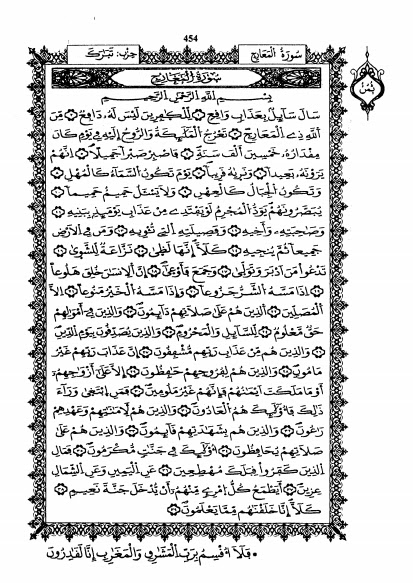 454
سُورَةُ الْمَعَارِجِ
حِزْبُ: تَبَٰرَكَ
ثُمُنُ
سُورَةُ الْمَعَارِجِ
بِسْمِ اللَّهِ الرَّحْمَٰنِ الرَّحِيمِ
سَالَ سَآئِلٌ بِعَذَابٍ وَاقِعٍ ۝ لِّلْكَٰفِرِينَ لَيْسَ لَهُ دَافِعٌ ۝ مِّنَ
اَللَّهِ ذِے اِلْمَعَارِجِ ۝ تَعْرُجُ الْمَلَٰٓئِكَةُ وَالرُّوحُ إِلَيْهِ فِے يَوْمٍ كَانَ
مِقْدَارُهُ خَمْسِينَ أَلْفَ سَنَةٍ ۝ فَاصْبِرْ صَبْرًا جَمِيلًا ۝ اِنَّهُمْ
يَرَوْنَهُ بَعِيدًا ۝ وَنَرَٰهُ قَرِيبًا ۝ يَوْمَ تَكُونُ السَّمَآءُ كَالْمُهْلِ ۝
وَتَكُونُ الْجِبَالُ كَالْعِهْنِ ۝ وَلَا يَسْـَٔلُ حَمِيمٌ حَمِيمًا ۝
يُبَصَّرُونَهُمْ يَوَدُّ الْمُجْرِمُ لَوْ يَفْتَدِے مِنْ عَذَابِ يَوْمَئِذٍ بِبَنِيهِ ۝
وَصَٰحِبَتِهِ وَأَخِيهِ ۝ وَفَصِيلَتِهِ اِلَّتِے تُـْٔوِيهِ ۝ وَمَن فِے اِلْأَرْضِ
جَمِيعًا ثُمَّ يُنجِيهِ ۝ كَلَّآ إِنَّهَا لَظَىٰ ۝ نَزَّاعَةٌ لِّلشَّوَىٰ ۝
تَدْعُواْ مَنَ اَدْبَرَ وَتَوَلَّىٰ ۝ وَجَمَعَ فَأَوْعَىٰٓ ۝ إِنَّ اَلْإِنسَٰنَ خُلِقَ هَلُوعًا
۝ اِذَا مَسَّهُ الشَّرُّ جَزُوعًا ۝ وَإِذَا مَسَّهُ الْخَيْرُ مَنُوعًا ۝ اِلَّا
اَلْمُصَلِّينَ ۝ اَلَّذِينَ هُمْ عَلَىٰ صَلَاتِهِمْ دَآئِمُونَ ۝ وَالَّذِينَ فِے أَمْوَٰلِهِمْ
حَقٌّ مَّعْلُومٌ ۝ لِّلسَّآئِلِ وَالْمَحْرُومِ ۝ وَالَّذِينَ يُصَدِّقُونَ بِيَوْمِ اِلدِّينِ
۝ وَالَّذِينَ هُم مِّنْ عَذَابِ رَبِّهِم مُّشْفِقُونَ ۝ إِنَّ عَذَابَ رَبِّهِمْ غَيْرُ
مَامُونٍ ۝ وَالَّذِينَ هُمْ لِفُرُوجِهِمْ حَٰفِظُونَ ۝ إِلَّا عَلَىٰٓ أَزْوَٰجِهِمُ
أَوْ مَا مَلَكَتَ اَيْمَٰنُهُمْ فَإِنَّهُمْ غَيْرُ مَلُومِينَ ۝ فَمَنِ اِبْتَغَىٰ وَرَآءَ
ذَٰلِكَ فَأُوْلَٰٓئِكَ هُمُ الْعَادُونَ ۝ وَالَّذِينَ هُمْ لِأَمَٰنَٰتِهِمْ وَعَهْدِهِمْ
رَٰعُونَ ۝ وَالَّذِينَ هُم بِشَهَٰدَتِهِمْ قَآئِمُونَ ۝ وَالَّذِينَ هُمْ عَلَىٰ
صَلَاتِهِمْ يُحَافِظُونَ ۝ أُوْلَٰٓئِكَ فِے جَنَّٰتٍ مُّكْرَمُونَ ۝ فَمَالِ
اِلَّذِينَ كَفَرُواْ قِبَلَكَ مُهْطِعِينَ ۝ عَنِ اِلْيَمِينِ وَعَنِ اِلشِّمَالِ
عِزِينَ ۝ أَيَطْمَعُ كُلُّ اُمْرِےٍٕ مِّنْهُمُ أَنْ يُّدْخَلَ جَنَّةَ نَعِيمٍ ۝
كَلَّآ إِنَّا خَلَقْنَٰهُم مِّمَّا يَعْلَمُونَ ۝
• فَلَآ أُقْسِمُ بِرَبِّ الْمَشَٰرِقِ وَالْمَغَٰرِبِ إِنَّا لَقَٰدِرُونَ